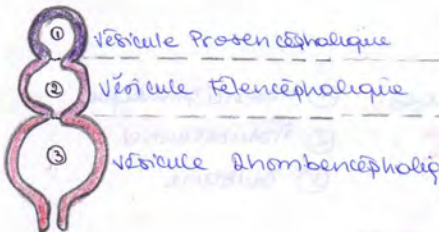 ① vésicule Prosencéphalique
② vésicule télencéphalique
③ vésicule Rhombencéphaliq